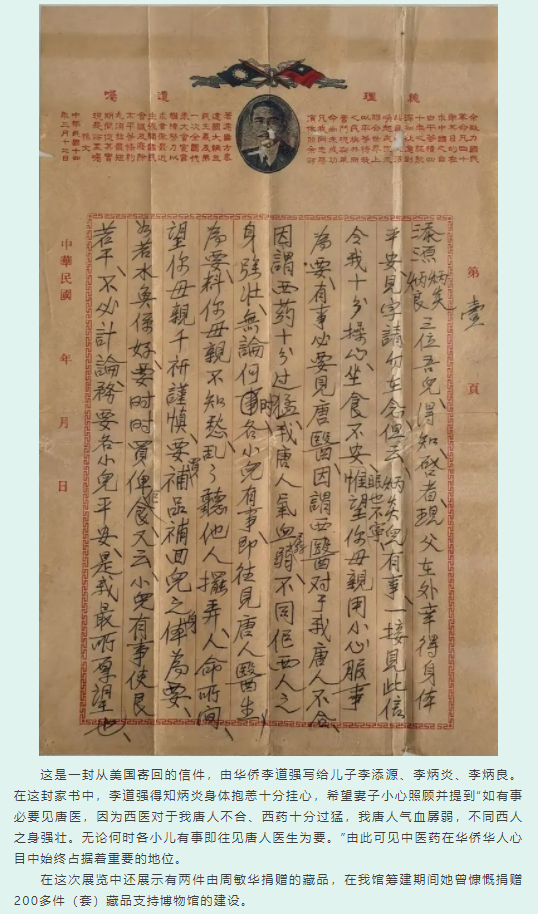 總理遺囑
余致力國民
革命凡四十
年其目的在
求中國之自
由平等積四
十年之經驗
深知欲達到
第壹頁
添源炳炎炳良三位吾兒得知啓者現父在外幸得身体
平安見字請勿在念但云炳炎兒有事一接見此信
令我十分操心坐食不安眠也不寧惟望你母親用小心服事
為要有事必要見唐醫因謂西醫对于我唐人不合
因謂西药十分过猛我唐人氣血孱弱不同佢西人之
身強壮無論何時各小兒有事即往見唐人醫生
為要料你母親不知愁乱聽他人擺弄人命所関
望你母親千祈謹慎要買補品補回兒之身体為要
如若水奐係好要時時買俾佢食又云小兒有事使艮
若干不必計論務要各小兒平安是我最所厚望也
中華民國 年 月 日
著建國方畧
建國大綱三
民主義及第
一次全國代
表大會宣言
繼續努力以
求貫徹最近
主張開國民
會議及廢除
不平等條約
尤須於最短
期間促其實
現是所至囑
孫文
中華民國十四
年三月十一日
这是一封从美国寄回的信件，由华侨李道强写给儿子李添源、李炳炎、李炳良。
在这封家书中，李道强得知炳炎身体抱恙十分挂心，希望妻子小心照顾并提到“如有事
必要见唐医，因为西医对于我唐人不合、西药十分过猛，我唐人气血孱弱，不同西人
之身强壮。无论何时各小儿有事即往见唐人医生为要。”由此可见中医药在华侨华人心
目中始终占据着重要的地位。
在这次展览中还展示有两件由周敏华捐赠的藏品，在我馆筹建期间她曾慷慨捐赠
200多件（套）藏品支持博物馆的建设。